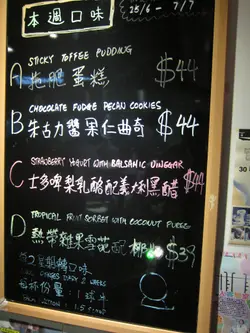 本週口味
25/6 - 7/7
STICKY TOFFEE PUDDING
A 拖肥蛋糕 $44
CHOCOLATE FUDGE PECAN COOKIES
B 朱古力醬果仁曲奇 $44
STRAWBERRY YOGURT WITH BALSAMIC VINEGAR
C 士多啤梨乳酪配義大利黑醋 $44
TROPICAL FRUIT SORBET WITH COCONUT PUREE
D 熱帶雜果雪葩配椰 $33
每2星期轉口味
每杯份量：1球半